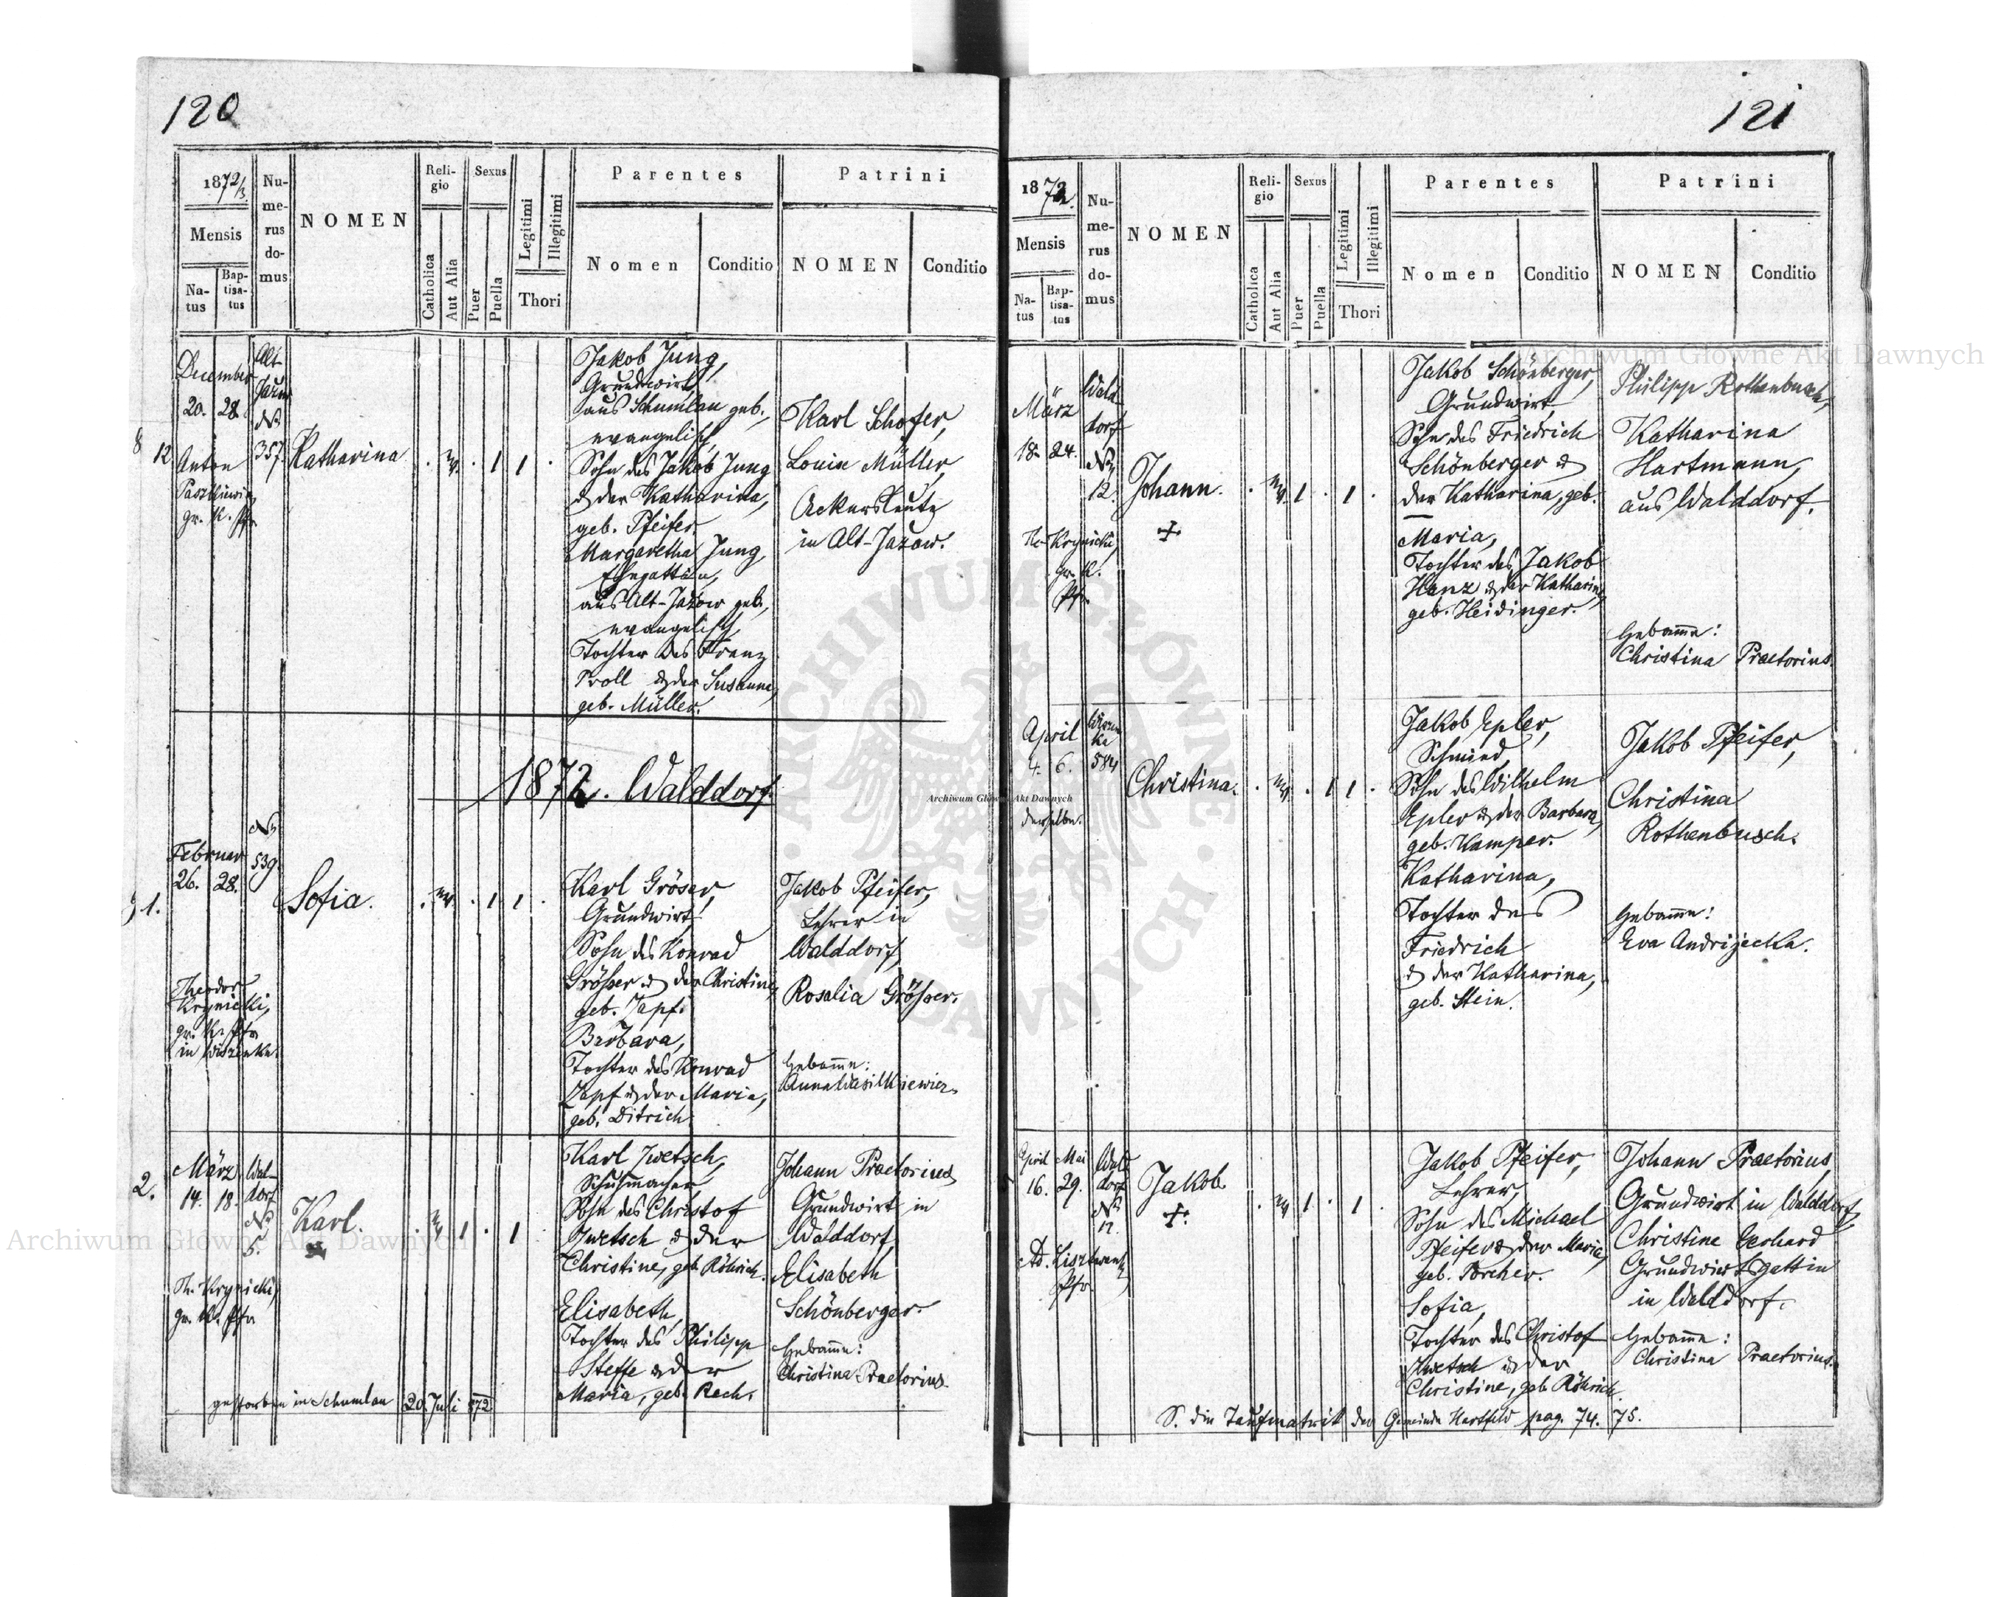 120
1872/3.
Mensis
Na-
tus
Bap-
tisa-
tus
Nu-
me-
rus
do-
mus
NOMEN
Reli-
gio
Catholica
Aut Alia
Sexus
Puer
Puella
Legitimi
Illegitimi
Thori
Parentes
Nomen
Conditio
Patrini
NOMEN
Conditio
December
20. 28.
Alt-
Jazow
No
357.
8
12
Anton
gr. k. Pfr.
Katharina
Jakob Jung,
Grundwirt,
aus Schumlau geb.,
evangelisch,
Sohn des Jakob Jung
& der Katharina,
geb. Pfeifer.
Margaretha Jung,
Ehegattin,
aus Alt-Jazow geb.,
evangelisch,
Tochter des Franz
& der Susanna,
geb. Müller.
Karl Schofer,
Louise Müller,
Ackersleute
in Alt-Jazow.
1872. Walddorf.
Februar
26. 28.
No
539
1.
Theodor
Krynicki,
gr. k. Pfr.
in Wiszenka.
Sofia.
Karl Gröser,
Grundwirt
Sohn des Konrad
Grösser & der Christina,
geb. Zapf.
Barbara,
Tochter des Konrad
Zapf & der Maria,
geb. Ditrich.
Jakob Pfeifer,
Lehrer in
Walddorf,
Rosalia Grösser.
Hebamme:
Anna Wasilkiewicz.
2.
März
14. 18.
Wal-
dorf
No
5.
Th. Krynicki,
gr. k. Pfr.
Karl.
Karl Zwetsch,
Schuhmacher
Sohn des Christof
Zwetsch & der
Christine, geb. Röhrich.
Elisabeth,
Tochter des Philipp
Steffe & der
Maria, geb. Rech.
Johann Praetorius
Grundwirt in
Walddorf
Elisabeth
Schönberger.
Hebamme:
Christina Praetorius.
gestorben in Schumlau 20. Juli 872
121
1872.
Mensis
Na-
tus
Bap-
tisa-
tus
Nu-
me-
rus
do-
mus
NOMEN
Reli-
gio
Catholica
Aut Alia
Sexus
Puer
Puella
Legitimi
Illegitimi
Thori
Parentes
Nomen
Conditio
Patrini
NOMEN
Conditio
März
18. 24.
Wald
dorf
No
12.
Th. Krynicki,
gr. k.
Pfr.
Johann.
Jakob Schönberger,
Grundwirt,
Sohn des Friedrich
Schönberger &
der Katharina, geb.
—
Maria,
Tochter des Jakob
Henz & der Katharina,
geb. Heidinger.
Philipp Rothenbusch,
Katharina
Hartmann,
aus Walddorf.
Hebamme:
Christina Praetorius.
April
4. 6.
Wiszen
ka
584
derselbe.
Christina.
Jakob Epler,
Schmied,
Sohn des Wilhelm
Epler & der Barbara,
geb. Kamper.
Katharina,
Tochter des
Friedrich
& der Katharina,
geb. Stein.
Jakob Pfeifer,
Christina
Rothenbusch.
Hebamme:
Eva Andrijecka.
April Mai
16. 29.
Wald
dorf
No
Pfr.
Jakob.
Jakob Pfeifer,
Lehrer,
Sohn des Michael
Pfeifer & der Maria,
geb. Porcher.
Sofia,
Tochter des Christof
Zwetsch & der
Christine, geb. Röhrich.
Johann Praetorius,
Grundwirt in Walddorf,
Christine Gerhard
Grundwirtsgattin
in Walddorf.
Hebamme:
Christina Praetorius.
S. die Taufmatrik der Gemeinde Hartfeld pag. 74. 75.
Archiwum Główne Akt Dawnych
Archiwum Główne Akt Dawnych
Archiwum Główne Akt Dawnych
ARCHIWUM GŁÓWNE AKT DAWNYCH